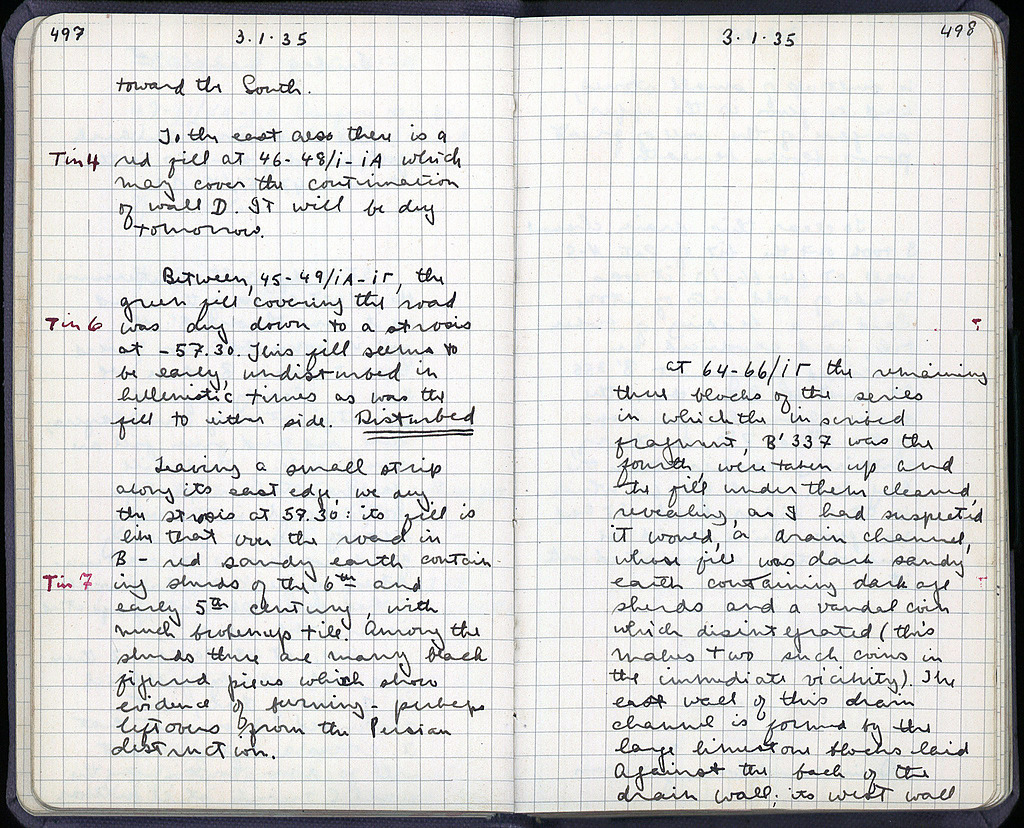 497
3·1·35
toward the South.
To the east also there is a
Tin 4 red fill at 46-48/Ι-ΙΑ which
may cover the continuation
of wall D. It will be dug
tomorrow.
Between, 45-49/ΙΑ-ΙΓ, the
green fill covering the road
Tin 6 was dug down to a strosis
at -57.30. This fill seems to
be early, undisturbed in
hellenistic times as was the
fill to either side. Disturbed
Leaving a small strip
along its east edge, we dug
the strosis at 57.30: its fill is
like that over the road in
B - red sandy earth contain-
Tin 7 ing sherds of the 6th and
early 5th century, with
much broken up tile. Among the
sherds there are many black
figured pieces which show
evidence of burning - perhaps
leftovers from the Persian
destruction.
498
3·1·35
at 64-66/ΙΓ the remaining
three blocks of the series
in which the inscribed
fragment, B'337 was the
fourth, were taken up and
the fill under them cleaned,
revealing, as I had suspected
it would, a drain channel,
whose fill was dark sandy
earth containing dark age
sherds and a vandal coin
which disintegrated (this
makes two such coins in
the immediate vicinity). The
east wall of this drain
channel is formed by the
large limestone blocks laid
against the back of the
drain wall; its west wall